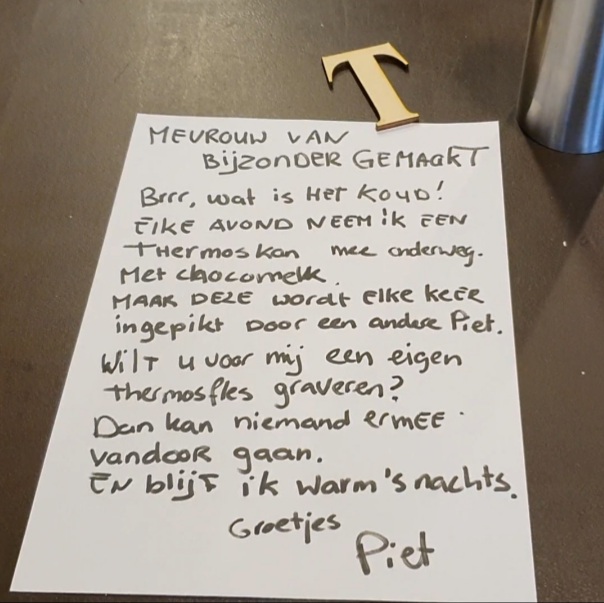 T
MEVROUW VAN
BijZONDER GEMAAKT
Brrr, wat is Het KOUD!
ElKE AVOND NEEM iK EEN
THermos kan mee onderweg.
Met chocomelk.
MAAR DEZE wordt elke keer
ingepikt Door een andere Piet.
Wilt u voor mij een eigen
thermosfles graveren?
Dan kan niemand ermee
vandoor gaan.
EN blijf ik warm 's nachts.
Groetjes
Piet